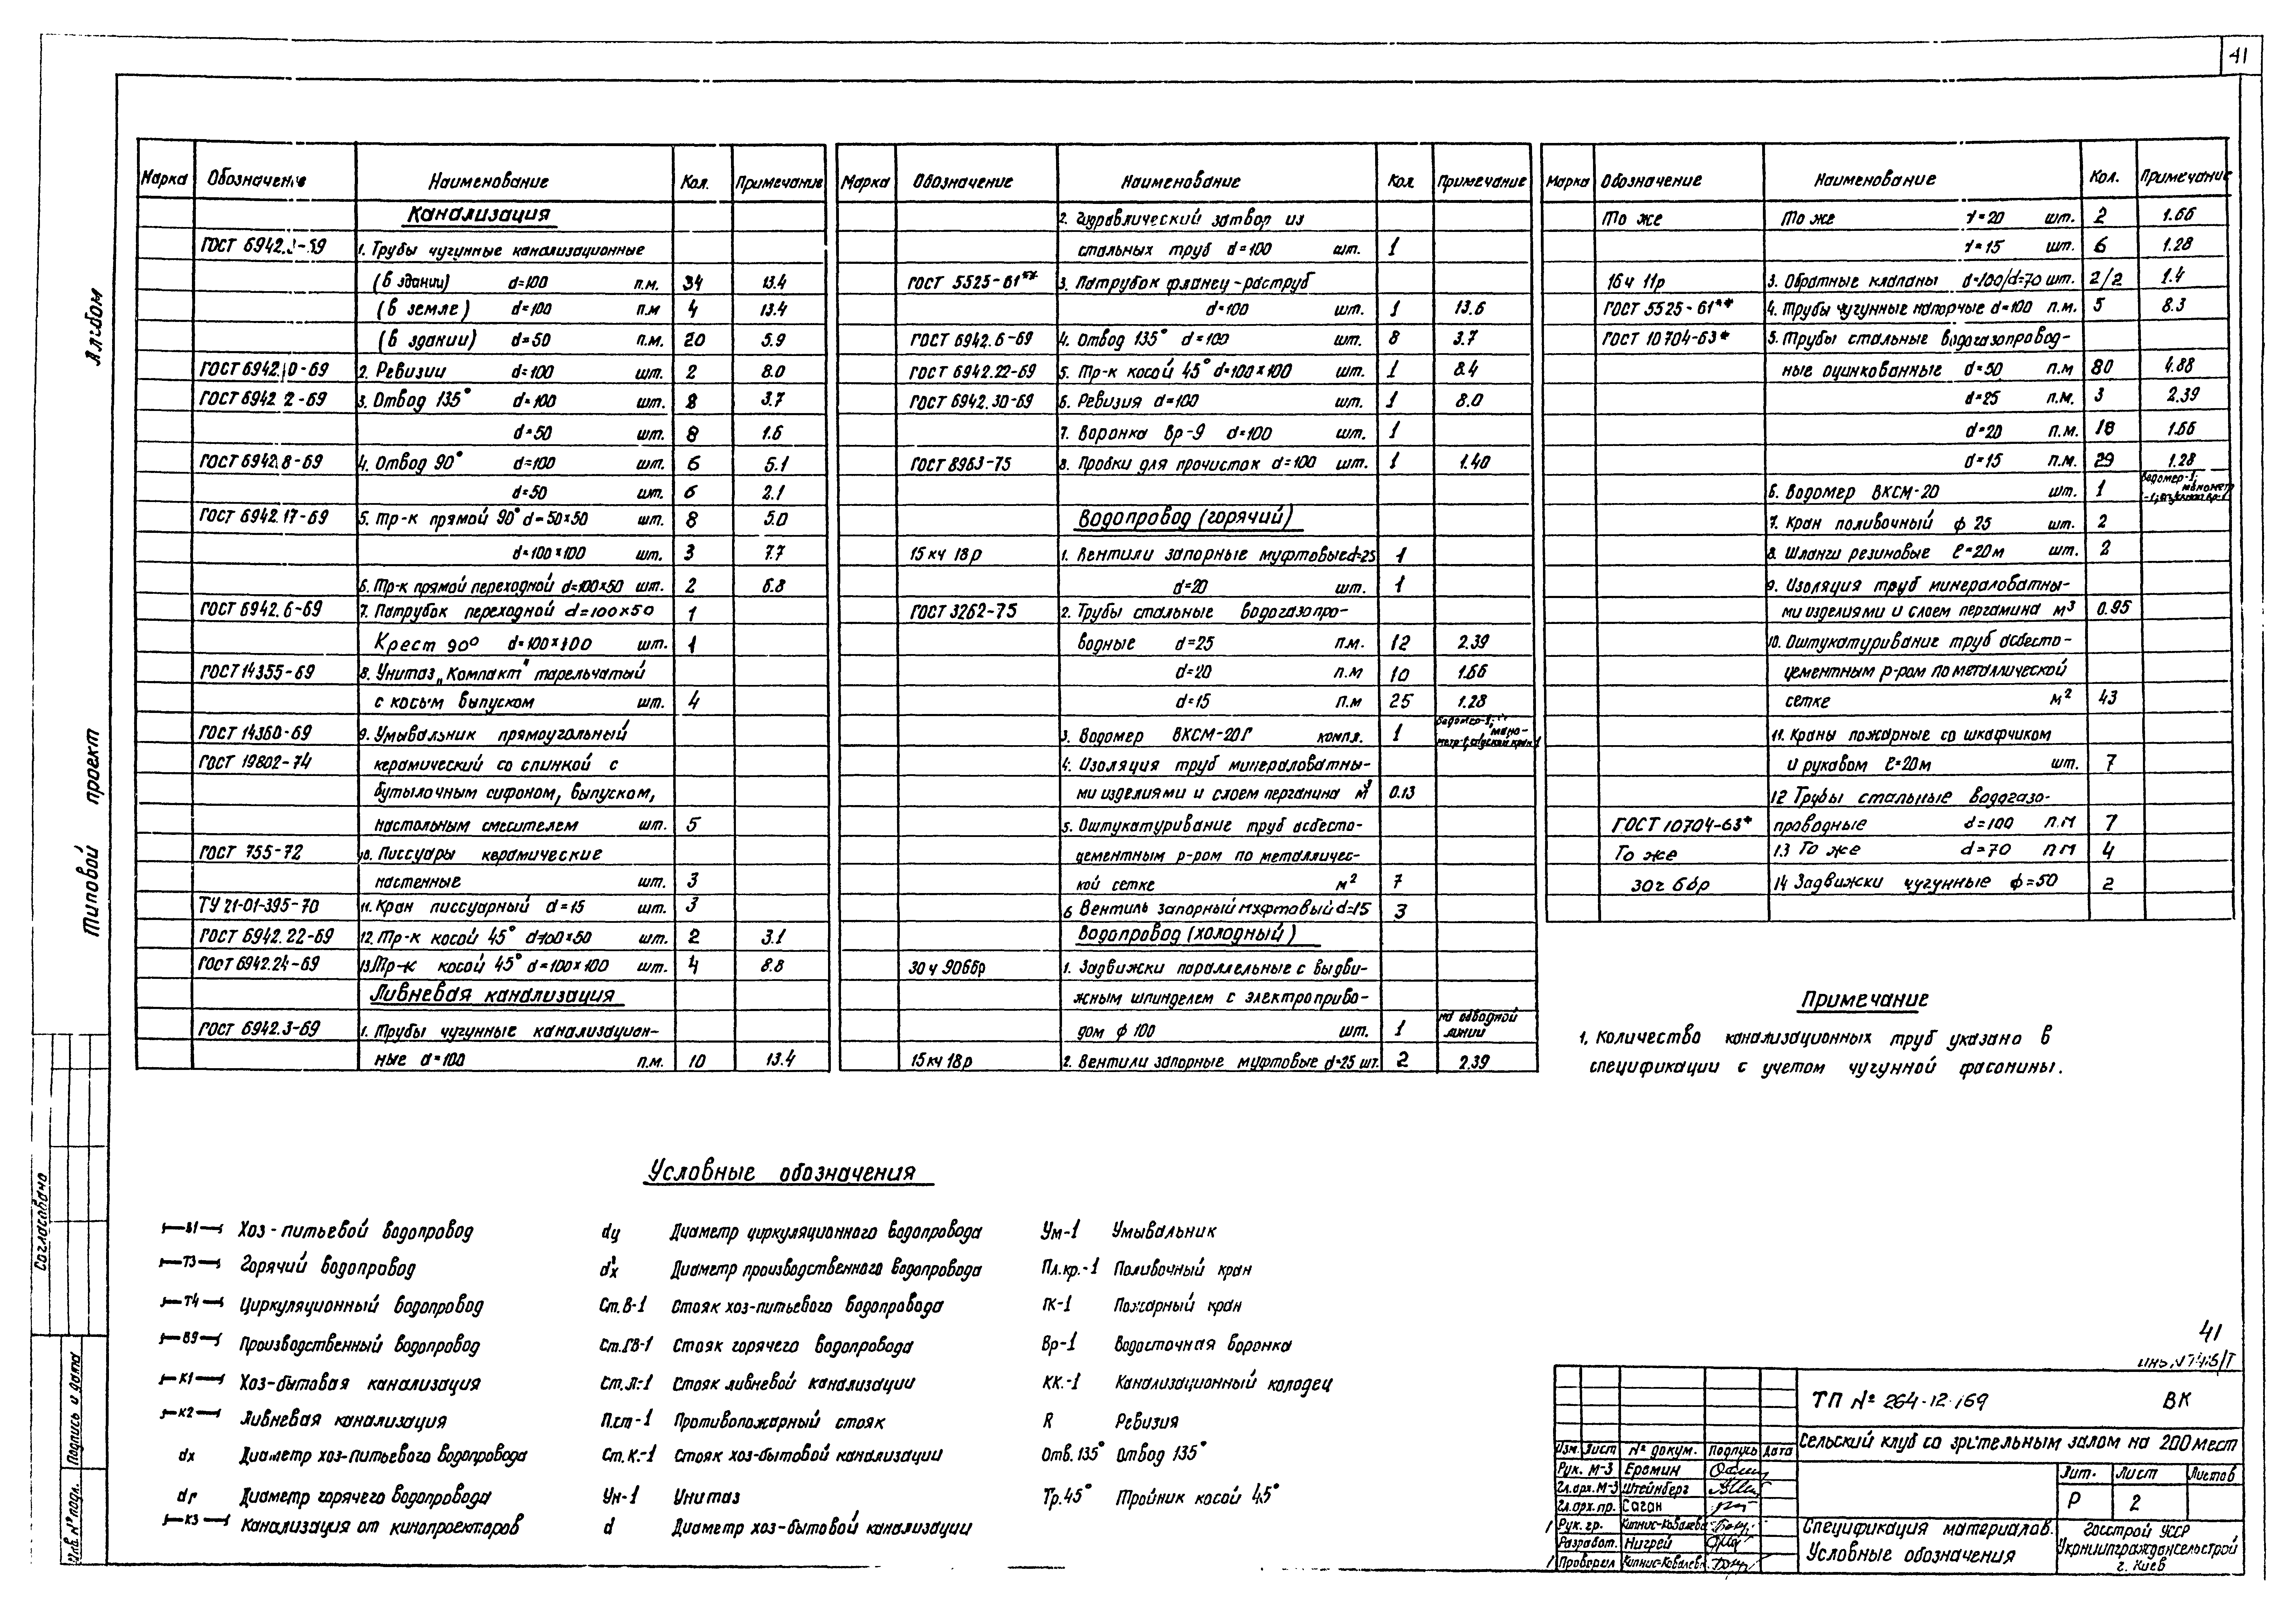 41
Альбом
Типовой проект
Согласовано
Подпись и дата
Инв. № подл.
Марка Обозначение Наименование Кол. Примечание
Канализация
ГОСТ 6942.3-59 1. Трубы чугунные канализационные
(в здании) d=100 п.м. 34 13.4
(в земле) d=100 п.м 4 13.4
(в здании) d=50 п.м. 20 5.9
ГОСТ 6942.10-69 2. Ревизии d=100 шт. 2 8.0
ГОСТ 6942 2-69 3. Отвод 135° d=100 шт. 8 3.7
d=50 шт. 8 1.6
ГОСТ 6942.8-69 4. Отвод 90° d=100 шт. 6 5.1
d=50 шт. 6 2.1
ГОСТ 6942.17-69 5. Тр-к прямой 90° d=50×50 шт. 8 5.0
d=100×100 шт. 3 7.7
6. Тр-к прямой переходной d=100×50 шт. 2 6.8
ГОСТ 6942.6-69 7. Патрубок переходной d=100×50 1
Крест 90° d=100×100 шт. 1
ГОСТ 14355-69 8. Унитаз „Компакт" тарельчатый
с косым выпуском шт. 4
ГОСТ 14360-69 9. Умывальник прямоугольный
ГОСТ 19802-74 керамический со спинкой с
бутылочным сифоном, выпуском,
настольным смесителем шт. 5
ГОСТ 755-72 10. Писсуары керамические
настенные шт. 3
ТУ 21-01-395-70 11. Кран писсуарный d=15 шт. 3
ГОСТ 6942.22-69 12. Тр-к косой 45° d=100×50 шт. 2 3.1
ГОСТ 6942.24-69 13. Тр-к косой 45° d=100×100 шт. 4 8.8
Ливневая канализация
ГОСТ 6942.3-69 1. Трубы чугунные канализацион-
ные d=100 п.м. 10 13.4
Марка Обозначение Наименование Кол Примечание
2. Гидравлический затвор из
стальных труб d=100 шт. 1
ГОСТ 5525-61** 3. Патрубок фланец-раструб
d=100 шт. 1 13.6
ГОСТ 6942.6-69 4. Отвод 135° d=100 шт. 8 3.7
ГОСТ 6942.22-69 5. Тр-к косой 45° d=100×100 шт. 1 8.4
ГОСТ 6942.30-69 6. Ревизия d=100 шт. 1 8.0
7. Воронка Вр-9 d=100 шт. 1
ГОСТ 8963-75 8. Пробки для прочисток d=100 шт. 1 1.40
Водопровод (горячий)
15 кч 18р 1. Вентили запорные муфтовые d=25 1
d=20 шт. 1
ГОСТ 3262-75 2. Трубы стальные водогазопро-
водные d=25 п.м. 12 2.39
d=20 п.м 10 1.66
d=15 п.м 25 1.28
3. Водомер ВКСМ-20Г компл. 1 Водомер-1; мано-
метр-1, спускной кран 1
4. Изоляция труб минераловатны-
ми изделиями и слоем пергамина м³ 0.13
5. Оштукатуривание труб асбесто-
цементным р-ром по металличес-
кой сетке м² 7
6 Вентиль запорный муфтовый d=15 3
Водопровод (холодный)
30 ч 906бр 1. Задвижки параллельные с выдви-
жным шпинделем с электроприво-
дом ф 100 шт. 1 на обводной линии
15 кч 18р 2. Вентили запорные муфтовые d=25 шт. 2 2.39
Марка Обозначение Наименование Кол. Примечание
То же То же d=20 шт. 2 1.66
d=15 шт. 6 1.28
16ч 11р 3. Обратные клапаны d=100/d=70 шт. 2/2 1.4
ГОСТ 5525-61** 4. Трубы чугунные напорные d=100 п.м. 5 8.3
ГОСТ 10704-63* 5. Трубы стальные водогазопровод-
ные оцинкованные d=50 п.м 80 4.88
d=25 п.м. 3 2.39
d=20 п.м. 18 1.66
d=15 п.м. 29 1.28
6. Водомер ВКСМ-20 шт. 1 Водомер-1; манометр
7. Кран поливочный ф 25 шт. 2
8. Шланги резиновые ℓ=20м шт. 2
9. Изоляция труб минераловатны-
ми изделиями и слоем пергамина м³ 0.95
10. Оштукатуривание труб асбесто-
цементным р-ром по металлической
сетке м² 43
11. Краны пожарные со шкафчиком
и рукавом ℓ=20м шт. 7
12 Трубы стальные водогазо-
ГОСТ 10704-63* проводные d=100 п.м 7
То же 13 То же d=70 п м 4
30ч 6бр 14 Задвижки чугунные ф=50 2
Примечание
1. Количество канализационных труб указано в
спецификации с учетом чугунной фасонины.
Условные обозначения
В1 Хоз-питьевой водопровод
Т3 Горячий водопровод
Т4 Циркуляционный водопровод
В9 Производственный водопровод
К1 Хоз-бытовая канализация
К2 Ливневая канализация
dх Диаметр хоз-питьевого водопровода
dг Диаметр горячего водопровода
К3 Канализация от кинопроекторов
dц Диаметр циркуляционного водопровода
d'х Диаметр производственного водопровода
Ст.В-1 Стояк хоз-питьевого водопровода
Ст.ГВ-1 Стояк горячего водопровода
Ст.Л.-1 Стояк ливневой канализации
П.ст-1 Противопожарный стояк
Ст.К.-1 Стояк хоз-бытовой канализации
Ун-1 Унитаз
d Диаметр хоз-бытовой канализации
Ум-1 Умывальник
Пл.кр.-1 Поливочный кран
ПК-1 Пожарный кран
Вр-1 Водосточная воронка
КК.-1 Канализационный колодец
R Ревизия
Отв.135° Отвод 135°
Тр.45° Тройник косой 45°
41
ТП № 264-12-169 ВК
Сельский клуб со зрительным залом на 200 мест
Изм. Лист № докум. Подпись Дата
Рук. М-3 Еромин
Гл.арх.М-3 Штейнберг
Гл.арх.пр. Саган
Рук. гр. Кипнис-Ковалева
Разработ. Нигрей
Проверил Кипнис-Ковалева
Лит. Лист Листов
Р 2
Спецификация материалов.
Условные обозначения
Госстрой УССР
Укрниипграждансельстрой
г. Киев